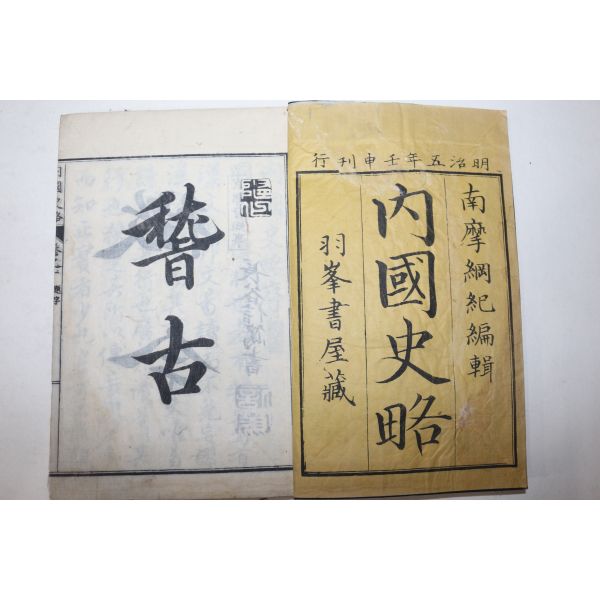 明治五年壬申刊行
南摩綱紀編輯
内國史略
羽峯書屋藏
稽古